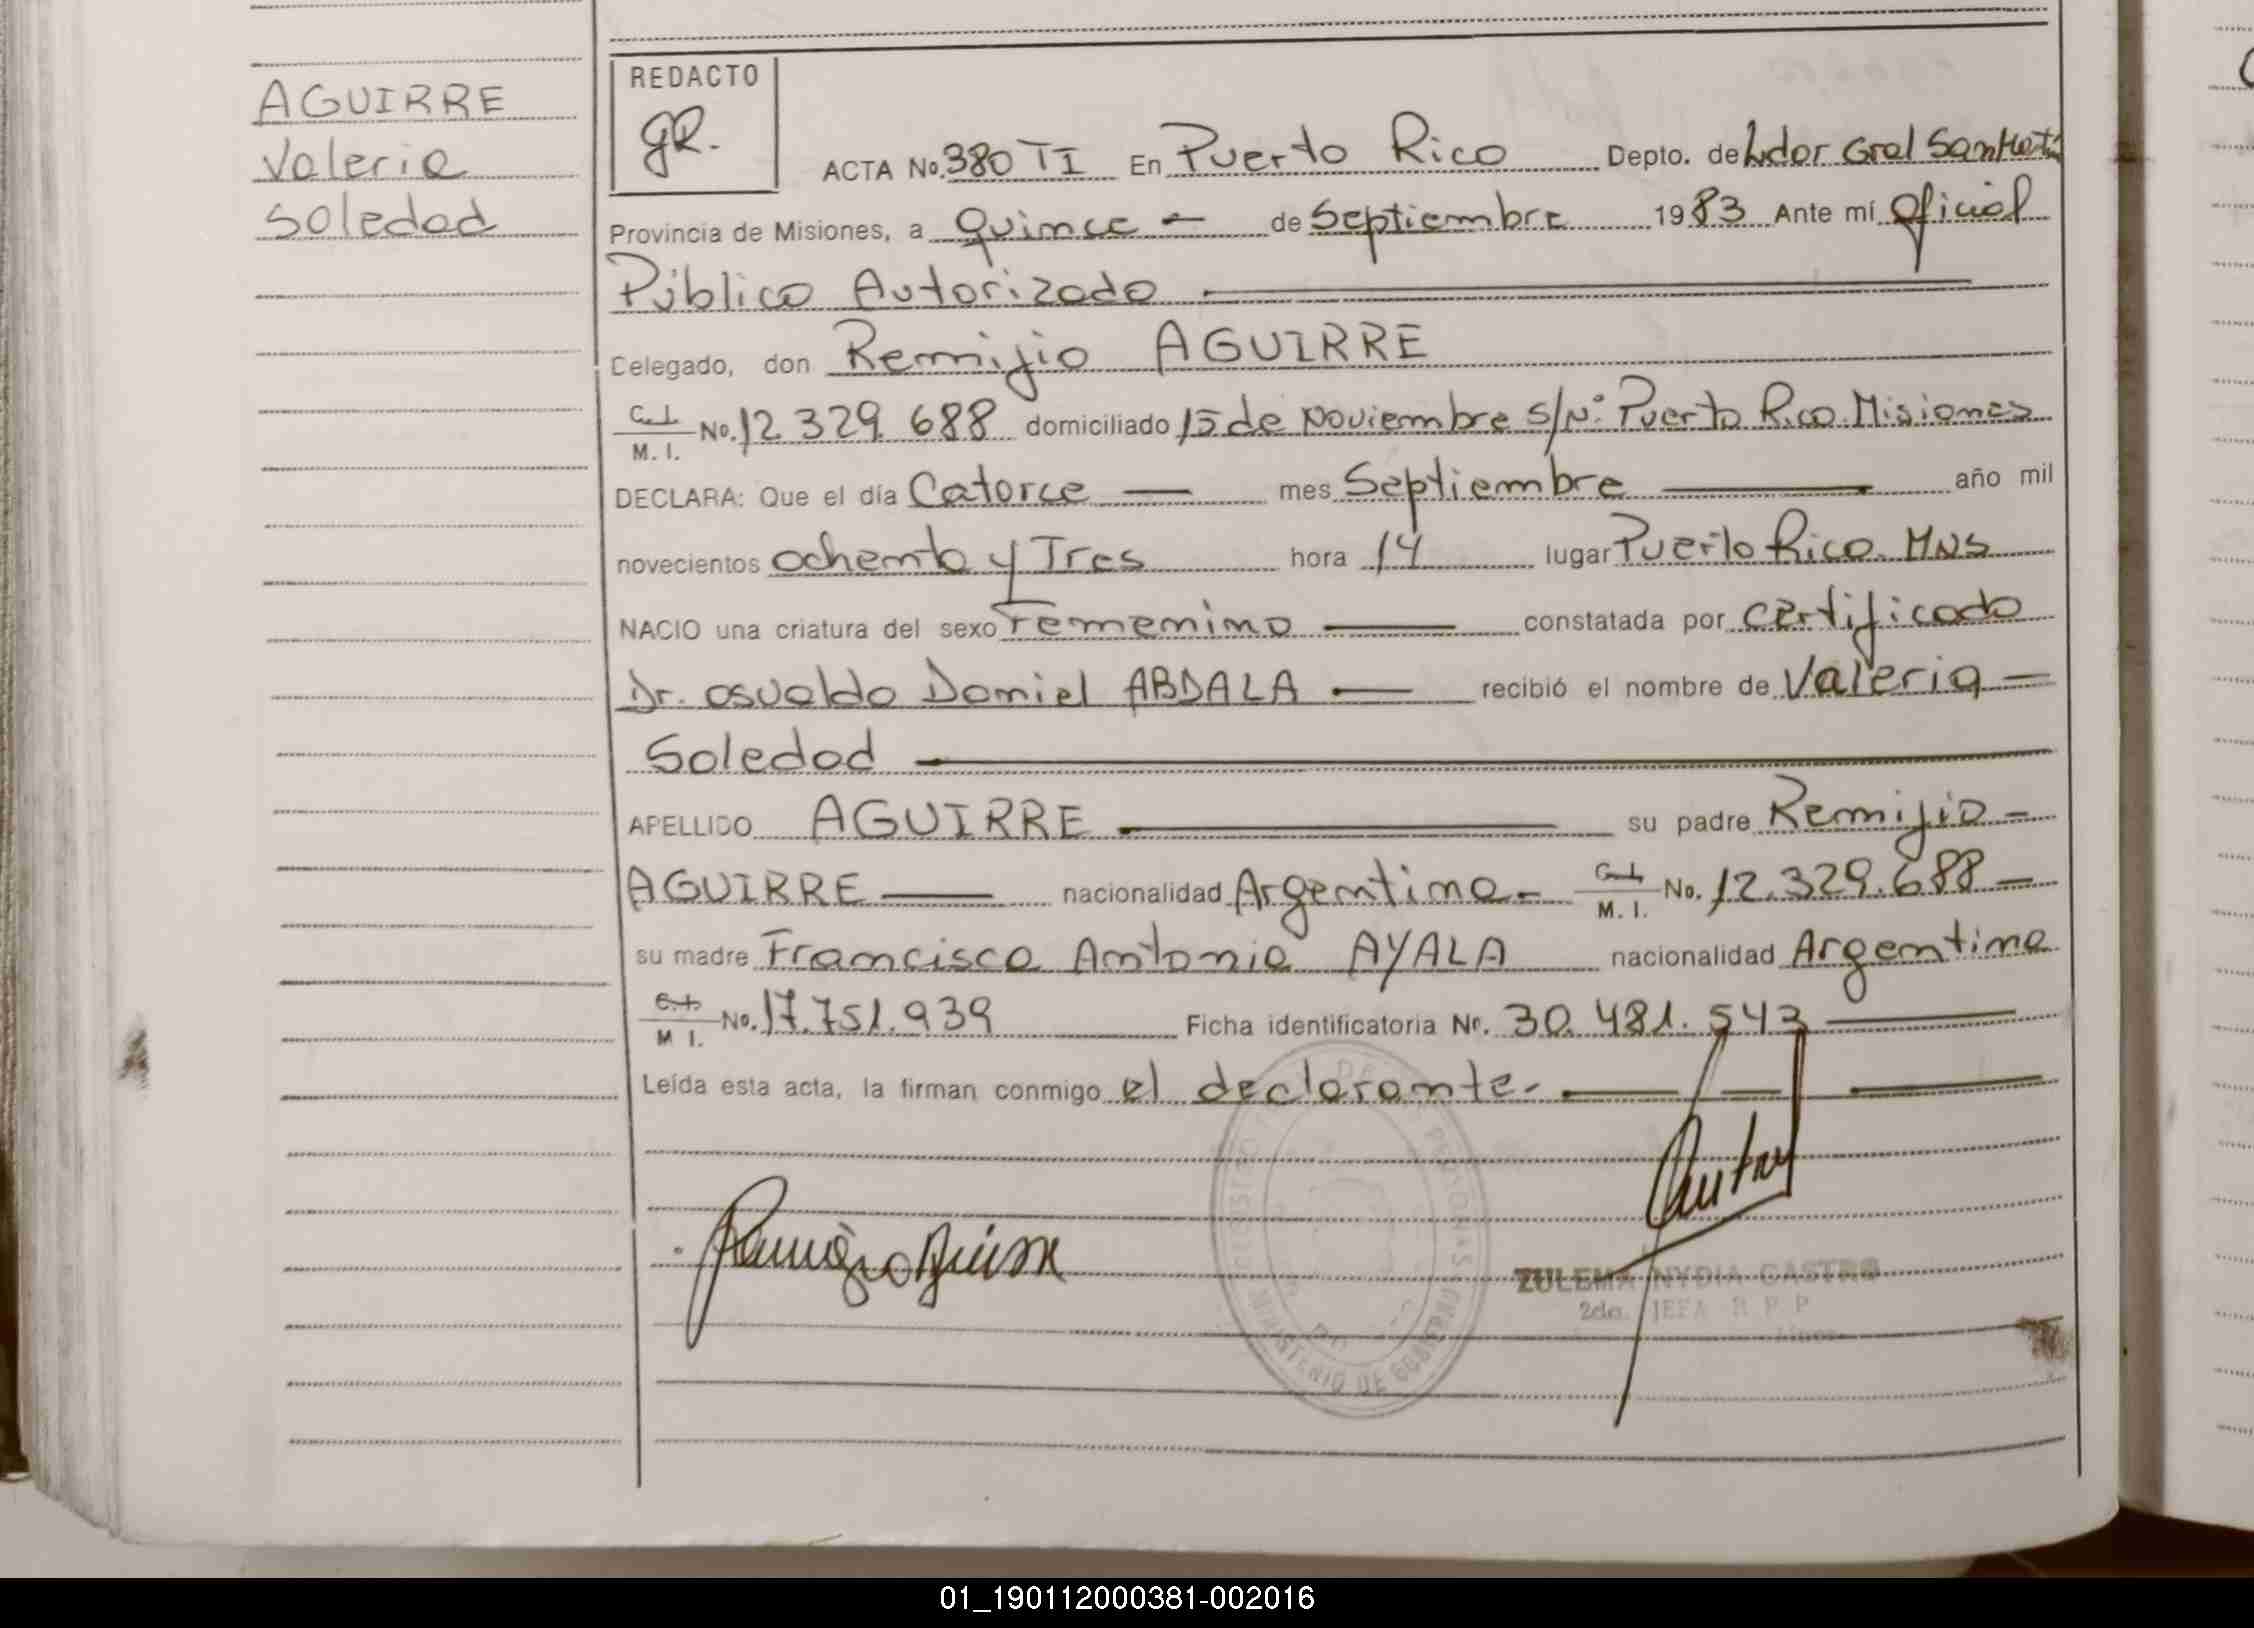 AGUIRRE
Valeria
Soledad
REDACTO
gR.
ACTA No. 380 TI En Puerto Rico Depto. de Ldor Gral San Martín
Provincia de Misiones, a Quince — de Septiembre 1983 Ante mí Oficial
Público Autorizado
Celegado, don Remijio AGUIRRE
C.I. M. I. No. 12 329 688 domiciliado 15 de Noviembre S/Nº Puerto Rico. Misiones
DECLARA: Que el día Catorce — mes Septiembre — año mil
novecientos ochenta y Tres hora 14 lugar Puerto Rico. MNS
NACIO una criatura del sexo Femenino — constatada por certificado
Dr. Osvaldo Daniel ABDALA — recibió el nombre de Valeria —
Soledad —
APELLIDO AGUIRRE — su padre Remijio —
AGUIRRE — nacionalidad Argentina - C.I. M. I. No. 12.329.688 —
su madre Francisca Antonia AYALA nacionalidad Argentina
C.I. M I. No. 17.751.939 Ficha identificatoria Nr. 30.481.543 —
Leída esta acta, la firman conmigo el declarante. —
Remigio Aguirre
ZULEMA NYDIA CASTRO
2da. JEFA R P P
MINISTERIO DE GOBIERNO
01_190112000381-002016